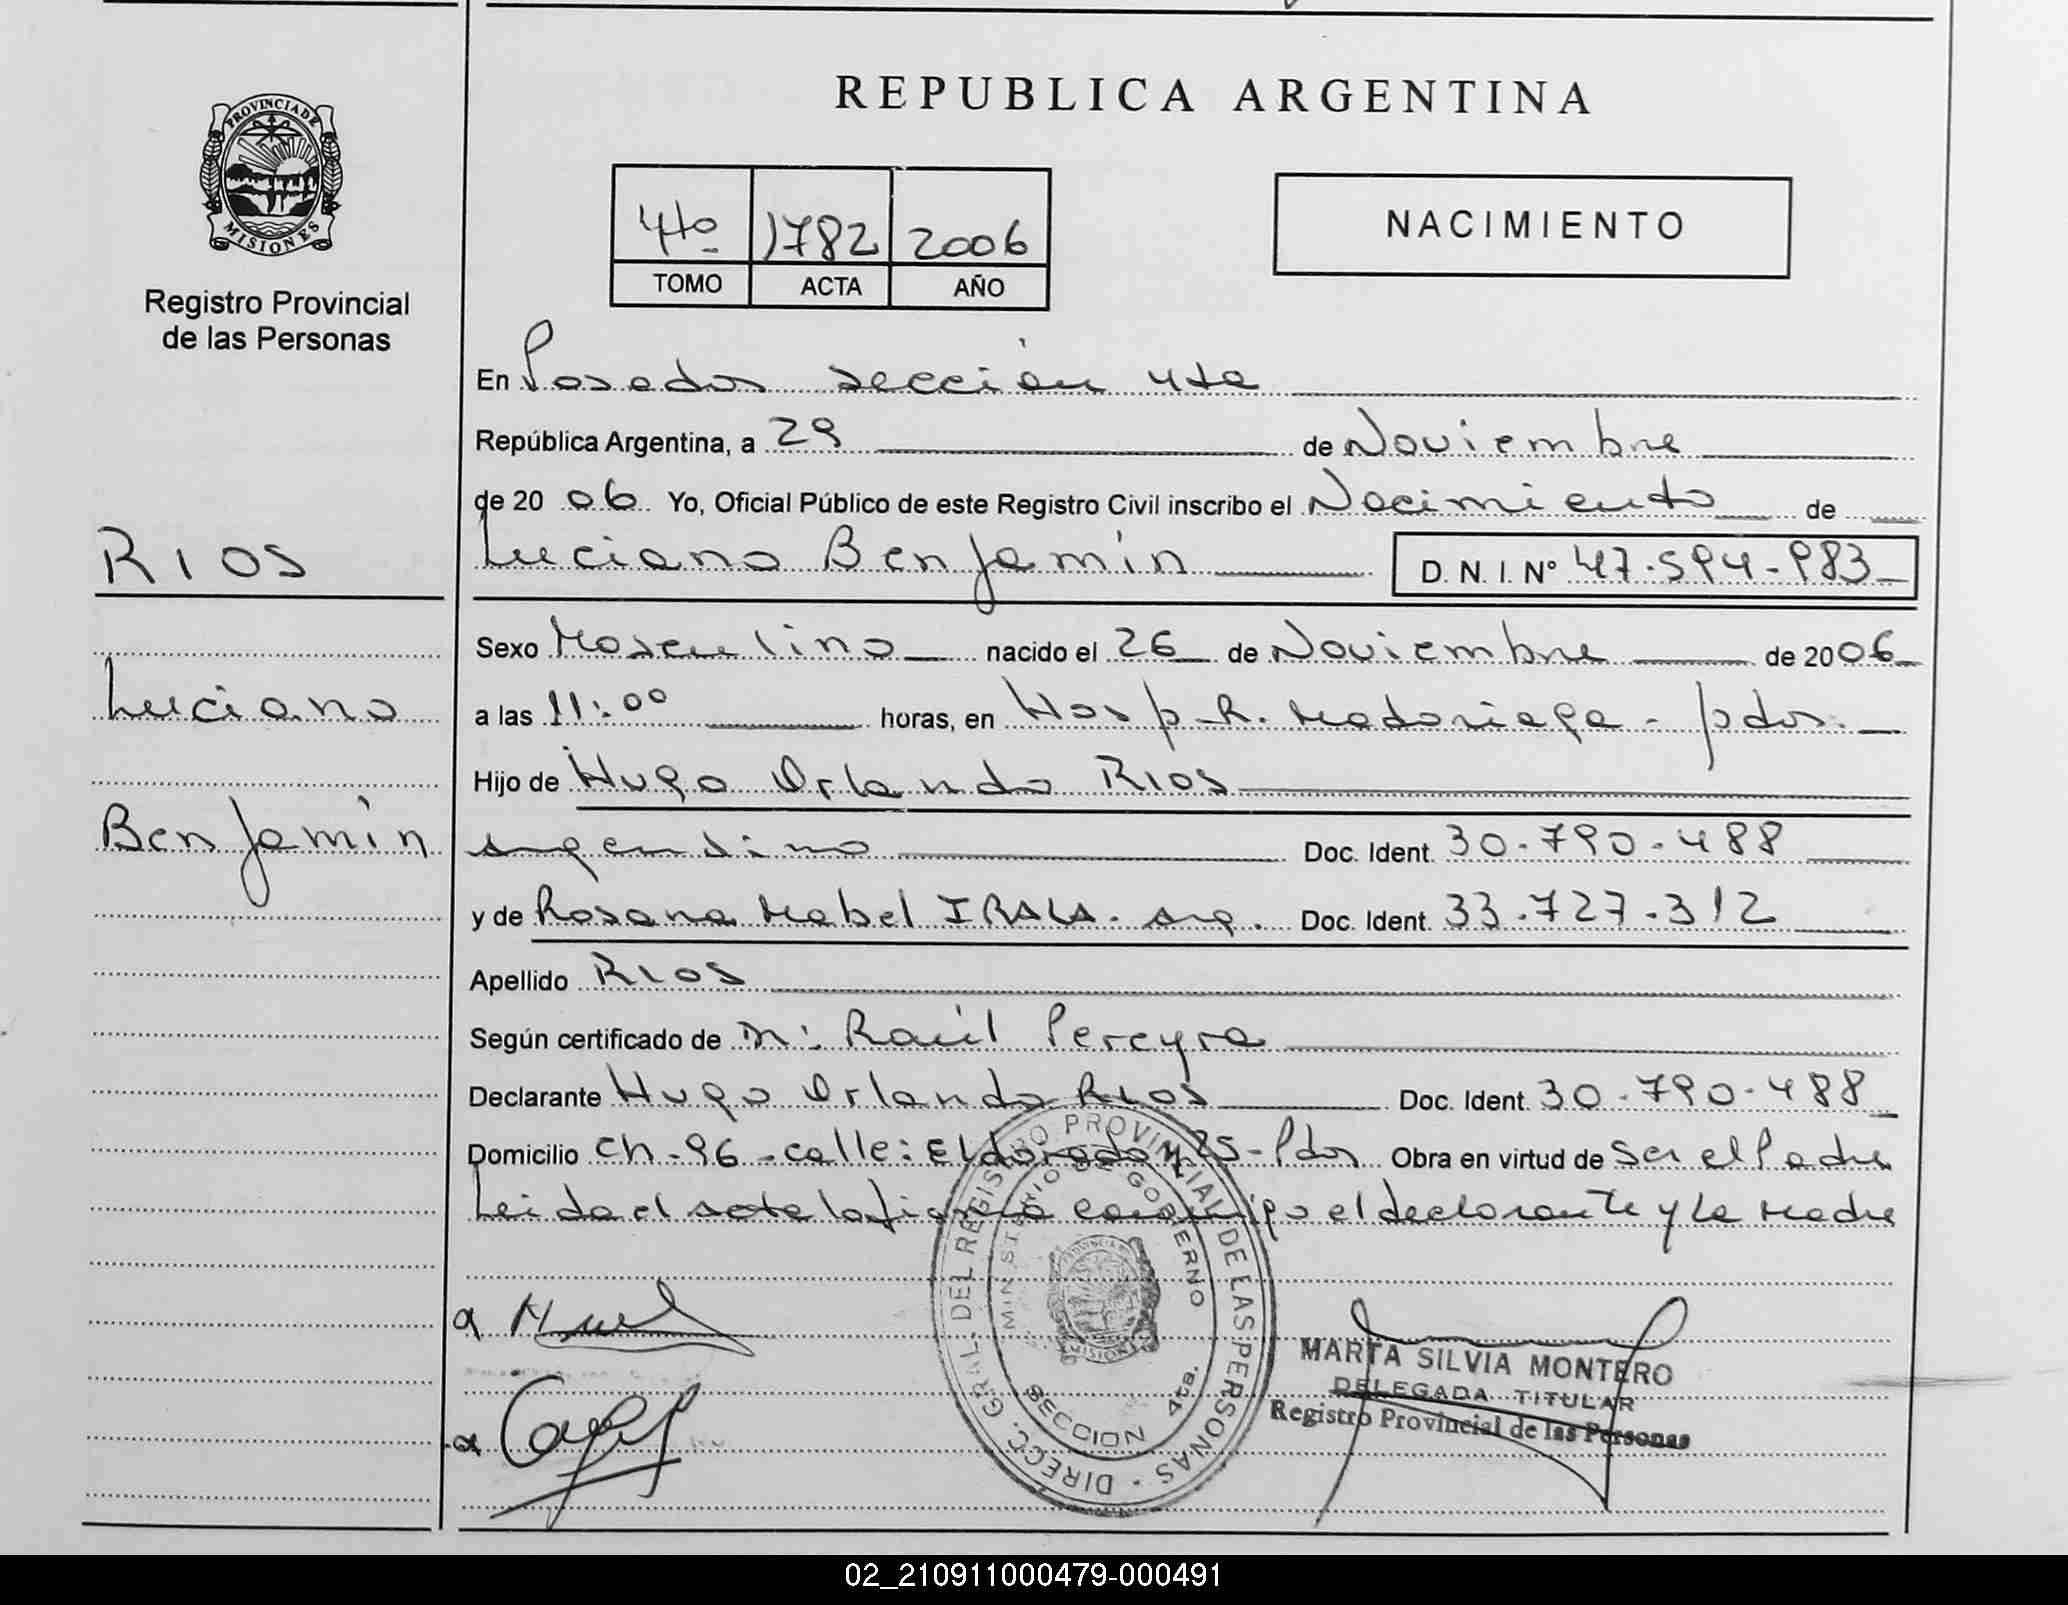 REPUBLICA ARGENTINA
PROVINCIA DE
MISIONES
Registro Provincial
de las Personas
4to 1782 2006
TOMO ACTA AÑO
NACIMIENTO
En Posadas sección 4ta
República Argentina, a 29 de Noviembre
de 2006 Yo, Oficial Público de este Registro Civil inscribo el Nacimiento de
Luciano Benjamín D. N. I. N° 47.594.983
RIOS
Luciano
Benjamín
Sexo Masculino nacido el 26 de Noviembre de 2006
a las 11:00 horas, en Hosp. R. Madariaga - pdas.
Hijo de Hugo Orlando RIOS
argentino Doc. Ident. 30.790.488
y de Rosana Mabel IRALA. arg. Doc. Ident. 33.727.312
Apellido RIOS
Según certificado de Raúl Pereyra
Declarante Hugo Orlando RIOS Doc. Ident. 30.790.488
Domicilio Ch-96-calle: Eldorado y 25-Pdas Obra en virtud de ser el Padre
Leida el acta la firma conmigo el declarante y la Madre
DIRECC. GRAL. DEL REGISTRO PROVINCIAL DE LAS PERSONAS
MINISTERIO DE GOBIERNO
SECCION 4ta.
MARTA SILVIA MONTERO
DELEGADA TITULAR
Registro Provincial de las Personas
02_210911000479-000491